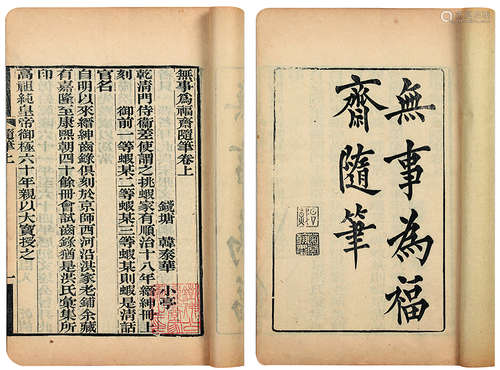 無事為福齋隨筆卷上
錢塘 韓泰華 小亭
乾清門侍衞差使謂之挑蝦家有順治十八年縉紳冊上
刻 御前一等蝦某二等蝦某三等蝦某則蝦是清話
官名
自明以來縉紳齒錄俱刻於京師西河沿洪家老鋪余藏
有嘉隆至康熙朝四十餘冊會試齒錄猶是洪氏彙集所
印
高祖純皇帝御極六十年親以大寶授之
隨筆上
一
無事為福
齋隨筆